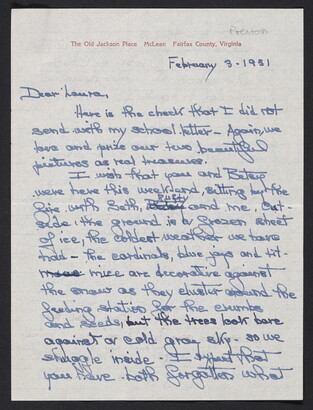 The Old Jackson Place McLean Fairfax County, Virginia
February 3 - 1951
Dear Laura,
Here is the check that I did not
send with my school letter - Again, we
love and prize our two beautiful
pictures as real treasures.
I wish that you and Betsy
were here this weekend, sitting by the
fire with Seth, Rusty and me. Out-
side, the ground is a frozen sheet
of ice, the coldest weather we have
had - the cardinals, blue jays and tit-
mice are decorative against
the snow as they cluster around the
feeding station for the crumbs
and seeds, but the trees look bare
against a cold gray sky - so we
snuggle inside - I expect that
you have both forgotten what